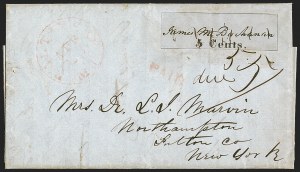 James M. Buchanan
5 Cents.
PAID
due 5
Mrs. Dr. L. I. Marvin
Northampton
Fulton Co
New York